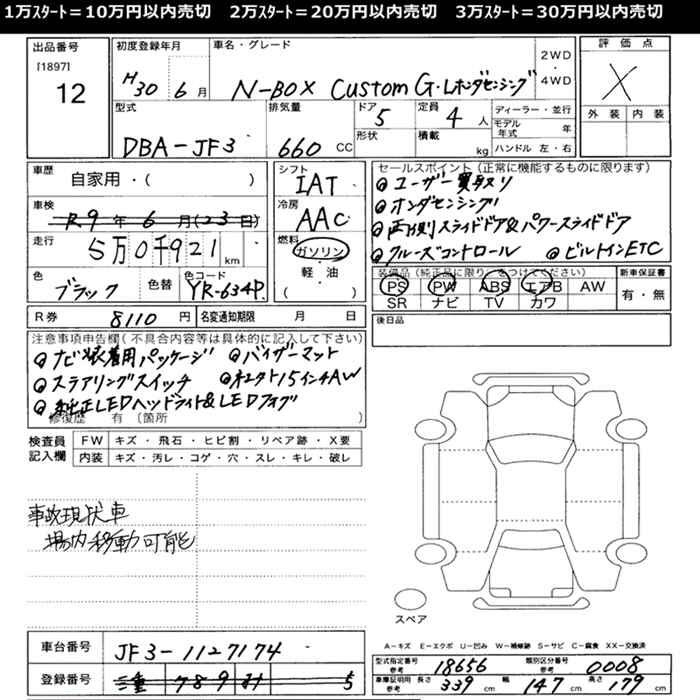 1万ｽﾀｰﾄ＝10万円以内売切　2万ｽﾀｰﾄ＝20万円以内売切　3万ｽﾀｰﾄ＝30万円以内売切
出品番号
[1897]
12
初度登録年月
H30 6月
車名・グレード
N-BOX Custom G・Lホンダセンシング
2WD
・
4WD
評価点
X
外装 内装
型式
DBA-JF3
排気量
660 CC
ドア
5
形状
定員
4人
積載
kg
ディーラー・並行
モデル年式 年
ハンドル 左・右
車歴
自家用・( )
車検
R9年6月(23日)
走行
5万0千921km
色
ブラック
色替
色コード
YR-634P
シフト
IAT
冷房
AAC
燃料
ガソリン
・
軽・油
( )
セールスポイント（正常に機能するものに限ります）
◎ユーザー買取り
◎ホンダセンシング
◎両側スライドドア&パワースライドドア
◎クルーズコントロール ◎ビルトインETC
装備品（純正品に限り○をつけてください）
PS PW ABS エアB AW
SR ナビ TV カワ
新車保証書
有・無
R券 8110円
名変通知期限 月 日
後日品
注意事項申告欄（不具合内容等は具体的に記入して下さい）
◎ナビ装着用パッケージ ◎バイザーマット
◎ステアリングスイッチ ◎ホンダ15インチAW
◎純正LEDヘッドライト&LEDフォグ
修復歴 有〔箇所 〕
検査員記入欄
FW キズ・飛石・ヒビ割・リペア跡・X要
内装 キズ・汚レ・コゲ・穴・スレ・キレ・破レ
事故現状車
場内移動可能
スペア
A－キズ E－エクボ U－凹み W－補修跡 S－サビ C－腐食 XX－交換済
車台番号 JF3-1127174
登録番号 789
型式指定番号 参考 18656
類別区分番号 参考 0008
車庫証明用 参考 長さ 339cm 幅 147cm 高さ 179cm